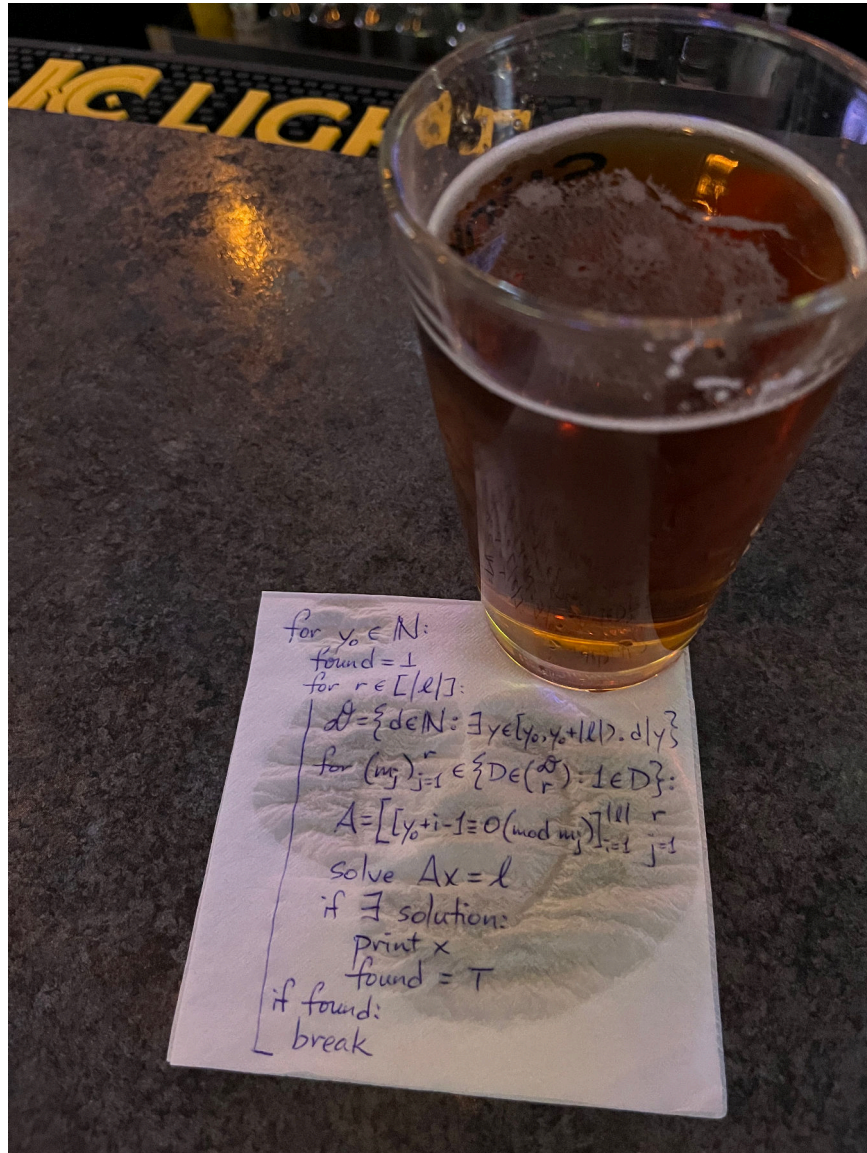 IC LIGHT
for y₀ ∈ ℕ:
found = ⊥
for r ∈ [|ℓ|]:
𝒟={d∈ℕ: ∃y∈[y₀,y₀+|ℓ|). d|y}
for (mⱼ)ʳⱼ₌₁ ∈ {D∈(𝒟 r): 1∈D}:
A=[[y₀+i-1≡0(mod mⱼ)]^|ℓ|ᵢ₌₁ ʳⱼ₌₁
solve Ax = ℓ
if ∃ solution:
print x
found = ⊤
if found:
break